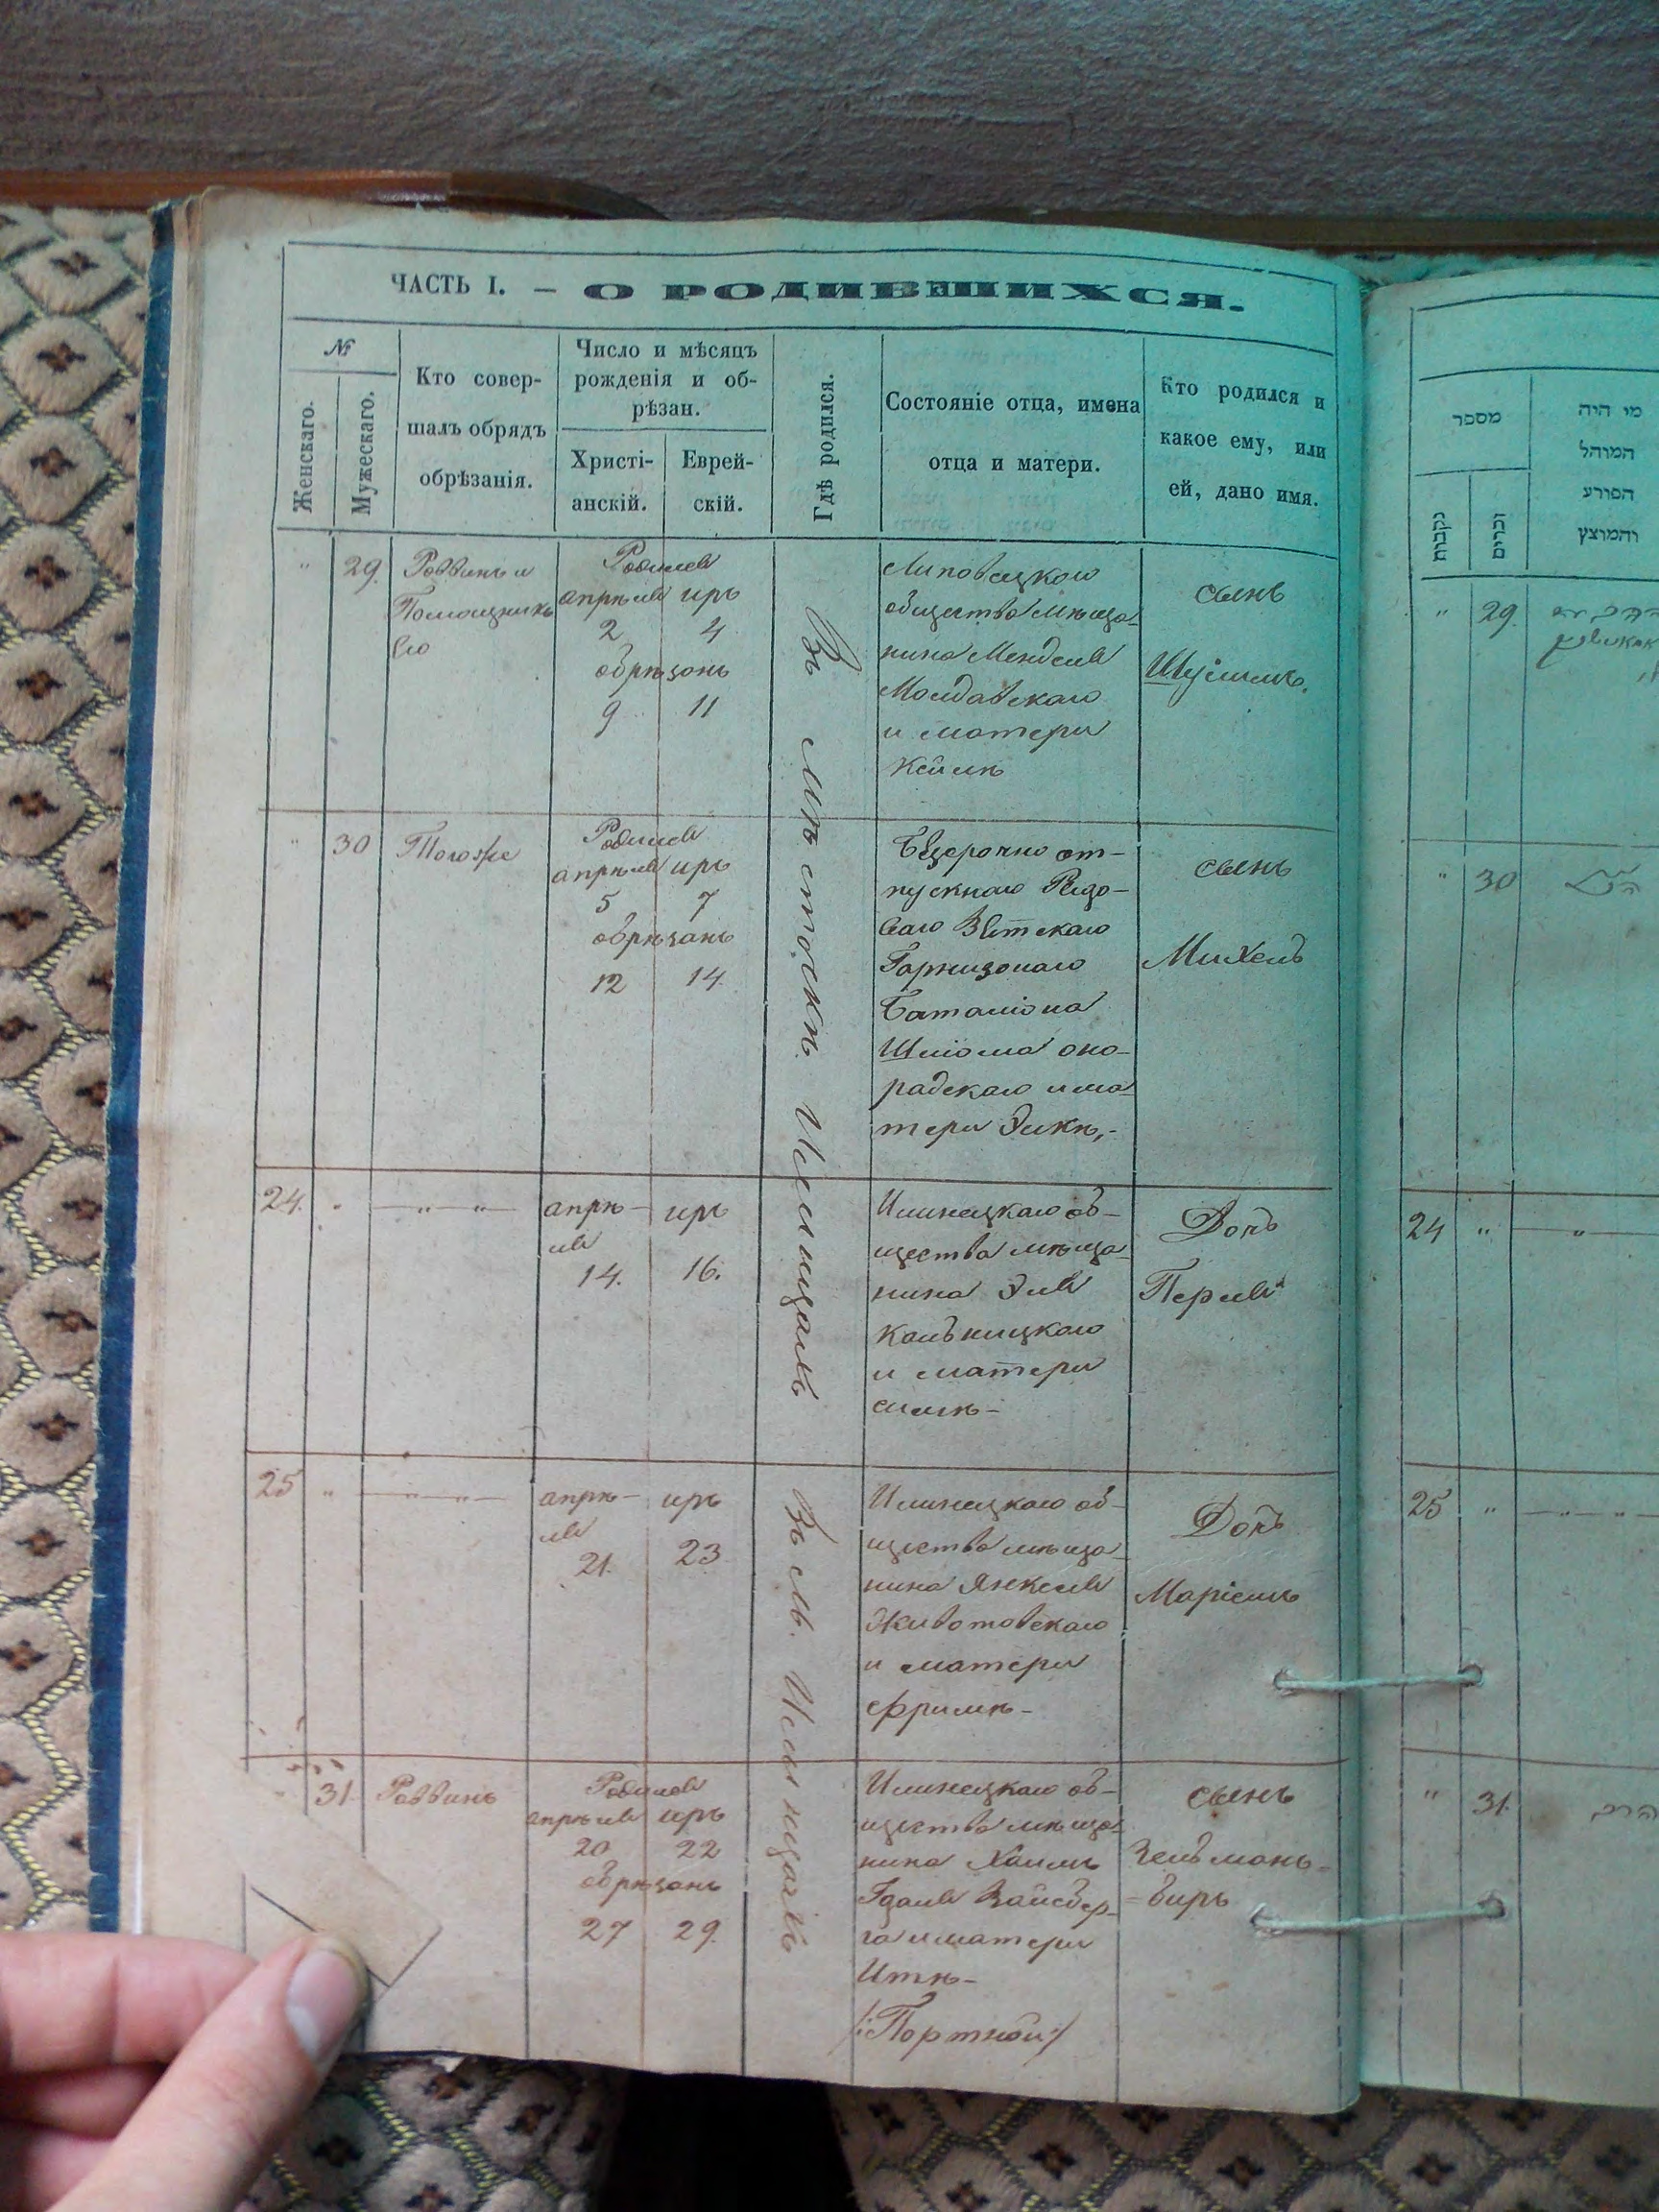 ЧАСТЬ I. – О РОДИВШИХСЯ.
№
Женскаго.
Мужескаго.
Кто совер-
шалъ обрядъ
обрѣзанія.
Число и мѣсяцъ
рожденія и об-
рѣзан.
Христі-
анскій.
Еврей-
скій.
Гдѣ родился.
Состояніе отца, имена
отца и матери.
Кто родился и
какое ему, или
ей, дано имя.
" 29.
Раввинъ и
Помощникъ
Его
Родился
апрѣля иръ
2 4
обрѣзанъ
9 11
Въ мѣстечкѣ Илинцахъ
Липовецкаго
общества мѣща-
нина Менделя
Молдавскаго
и матери
Хейлѣ
сынъ
" 30
Тогоже
Родился
апрѣля иръ
5 7
обрѣзанъ
12 14
Безсрочно от-
пускнаго Рядо-
ваго
Гарнизонаго
Баталіона
Шліома
и ма-
тери Элкѣ,-
сынъ
Михель
24. "
— " — " —
апрѣ-
ля
иръ
14. 16.
Илинецкаго об-
щества мѣща-
нина Эля
Кальницкаго
и матери
Дочь
Перля
25 "
— " — " —
апрѣ-
ля
иръ
21. 23
Въ м. Илинцахъ
Илинецкаго об-
щества мѣща-
нина Янкеля
Животовскаго
и матери
Фримѣ-
Дочь
Маріемъ
" 31.
Раввинъ
Родился
апрѣля иръ
20 22
обрѣзанъ
27 29.
Илинецкаго об-
щества мѣща-
нина Хаимъ
Гдаля Вайсбер-
га и матери
Итѣ-
/:Портной:/
сынъ
Зельманъ-
=биръ
מספר
נקבות
זכרים
מי היה
המוהל
הפורע
והמוצץ
" 29.
" 30
24 "
25 "
" 31.